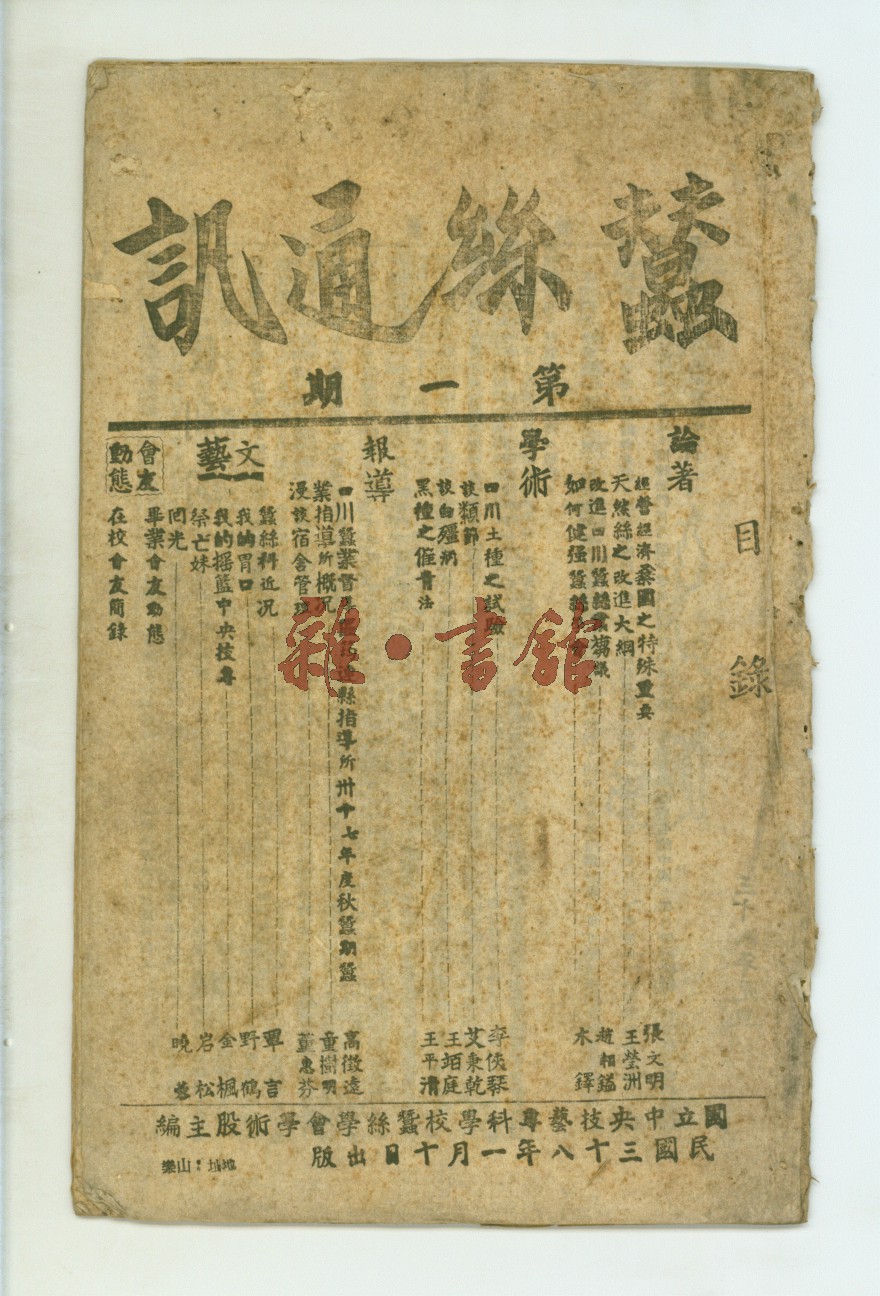 蠶絲通訊
第一期
目錄
論著
經營經濟蠶國之特殊重要 張文明
天然絲之改進大綱 王瑩洲
改進四川蠶絲業芻議 趙相鑑
如何健强蠶絲 木鐸
學術
四川土種之試驗 李俠琴
談類節 艾秉乾
談白殭病 王珀庭
黑種之催青法 王平清
報導
四川蠶業督導 筠連縣指導所卅十七年度秋蠶期蠶 高徵遠
業指導所概况 童樹明
漫談宿舍管理 董惠芬
文藝
蠶絲科近况 覃言
我的胃口 野鶴
我的搖籃中央技專 金楓
祭亡妹 岩松
囘光 曉
會友動態
畢業會友動態
在校會友簡錄
國立中央技藝專科學校蠶絲學會學術股主編
民國三十八年一月十日出版
地址：樂山
雜·書舘